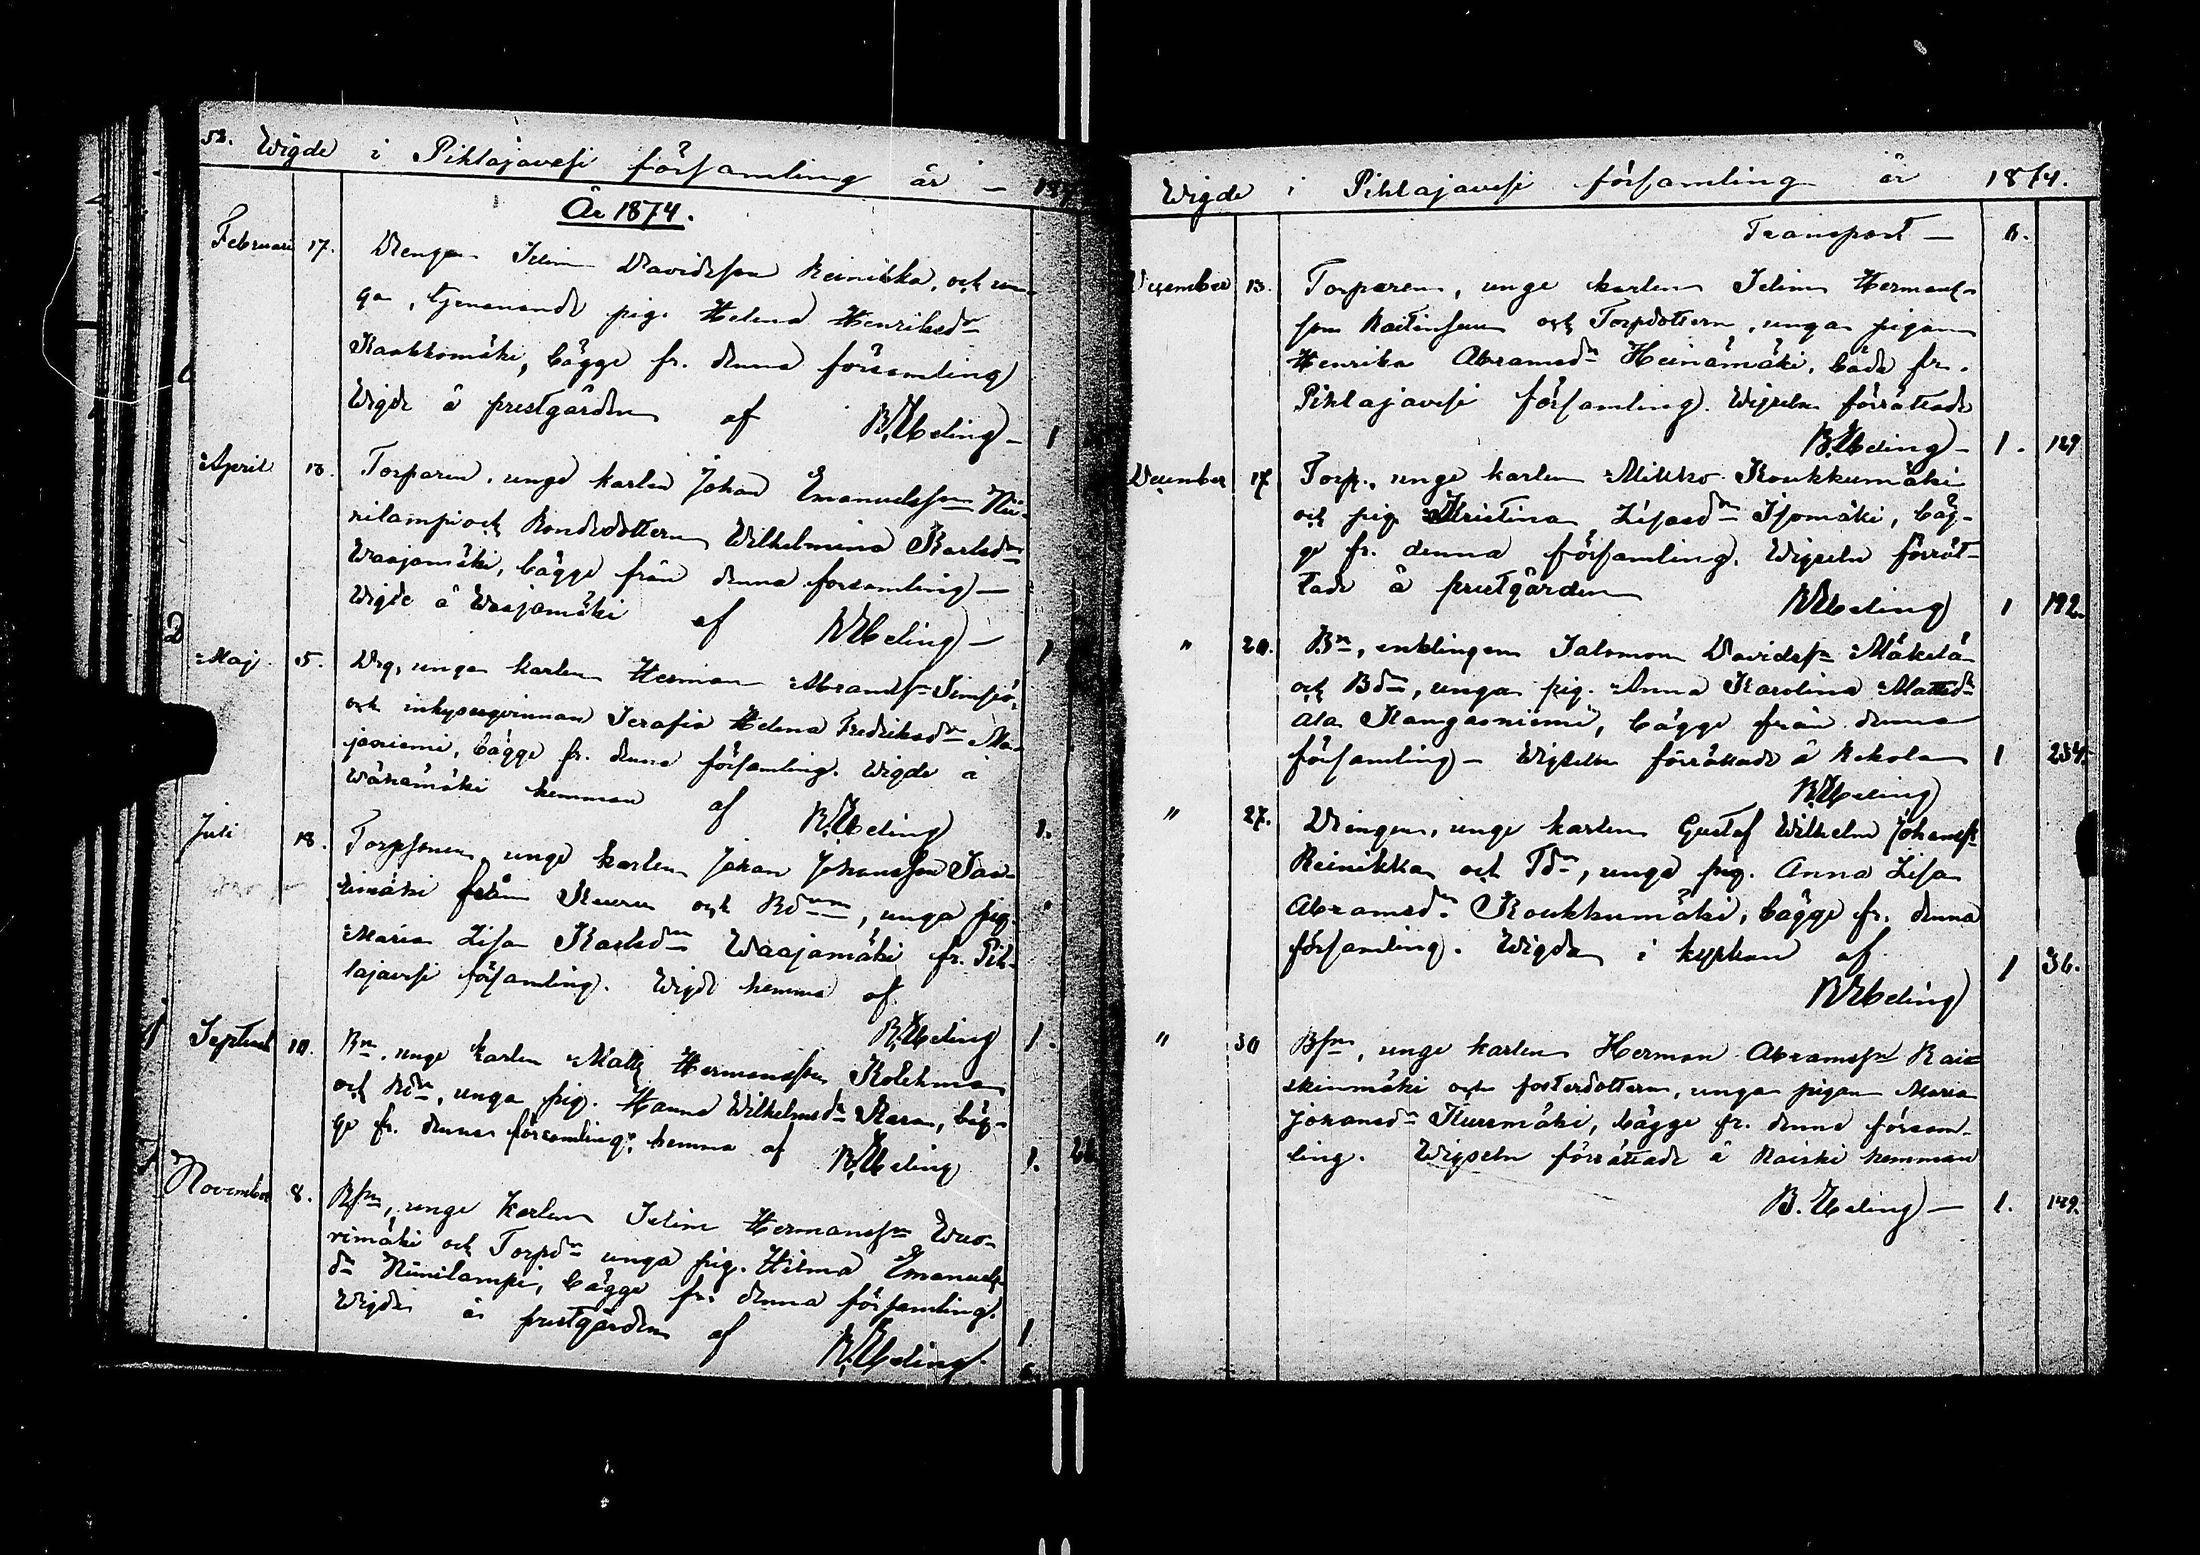 52. Wigde i Pihlajavesi församling år – 187
År 1874.
Februari 17. Drengen Selim Davidsson Reinikka, och un-
ga, tjenande pig. Helena Henriksdr
Kaukkomäki, bägge fr. denna församling
Wigde å prestgården af B. Ubeling – 1
April 13. Torparen, unge karlen Johan Emanuelsson Nii-
nilampi och Bondedottern Wilhelmina Karlsdr
Waajamäki, bägge från denna församling –
Wigde å Waajamäki af B Ubeling – 1
Maj 5. Drg, unga karlen Herman Abramsn
och inhysesqvinnan Serafia Helena Fredriksdr Ma-
janiemi, bägge fr. denna församling. Wigde å
Wähämäki hemman af B. Ubeling 1.
Juli 18. Torpsonen, unge karlen Johan Johansson
från Keuru och Bdrn, unga pig.
Maria Lisa Karlsdr Waajamäki fr. Pih-
lajavesi församling. Wigde hemma af
B. Ubeling 1.
Septemb 10. Bn, unge karlen Matts Hermansson
och Bdn, unga pig. Hanna Wilhelmsdr bäg-
ge fr. denna församling, hemma af B. Ubeling 1.
November 8. Bsn, unge karlen Selim Hermanssn Wuo-
rimäki och Torpdn unga pig. Hilma Emanuels-
dr Niinilampi, bägge fr. denna församling.
Wigde å prestgården af B. Ubeling. 1
6
Wigde i Pihlajavesi församling år 1874.
Transport – 6.
December 13. Torparen, unge karlen Selim Hermans-
son och Torpdottern, unga pigan
Henrika Abramsdr Heinämäki, båda fr.
Pihlajavesi församling. Wigseln förrättade
B. Ubeling – 1. 129
December 17 Torp., unge karlen Mikko Koukkumäki
och pig. Kristina Lisasdr Isomäki, bäg-
ge fr. denna församling. Wigseln förrät-
tade å prestgården B Ubeling 1 192.
" 20. Bn, enklingen Salomon Davidssn Mäkelä
och Bdn, unga pig. Anna Karolina Mattsdr
Ala Kangasniemi, bägge från denna
församling – Wigseln förrättade å Rekola 1 254.
B. Ubeling
" 27. Drengen, unge karlen Gustaf Wilhelm Johanss
Reinikka och Tdn, unga pig. Anna Lisa
Abramsdr Koukkumäki, bägge fr. denna
församling. Wigda i kyrkan af 1 36.
B Ubeling
" 30 Bsn, unge karlen Herman Abramssn Rai-
skinmäki och fosterdottern, unga pigan Maria
Johansdr Kuremäki, bägge fr. denna försam-
ling. Wigseln förrättade å Raiski hemman
B. Ubeling – 1. 149.